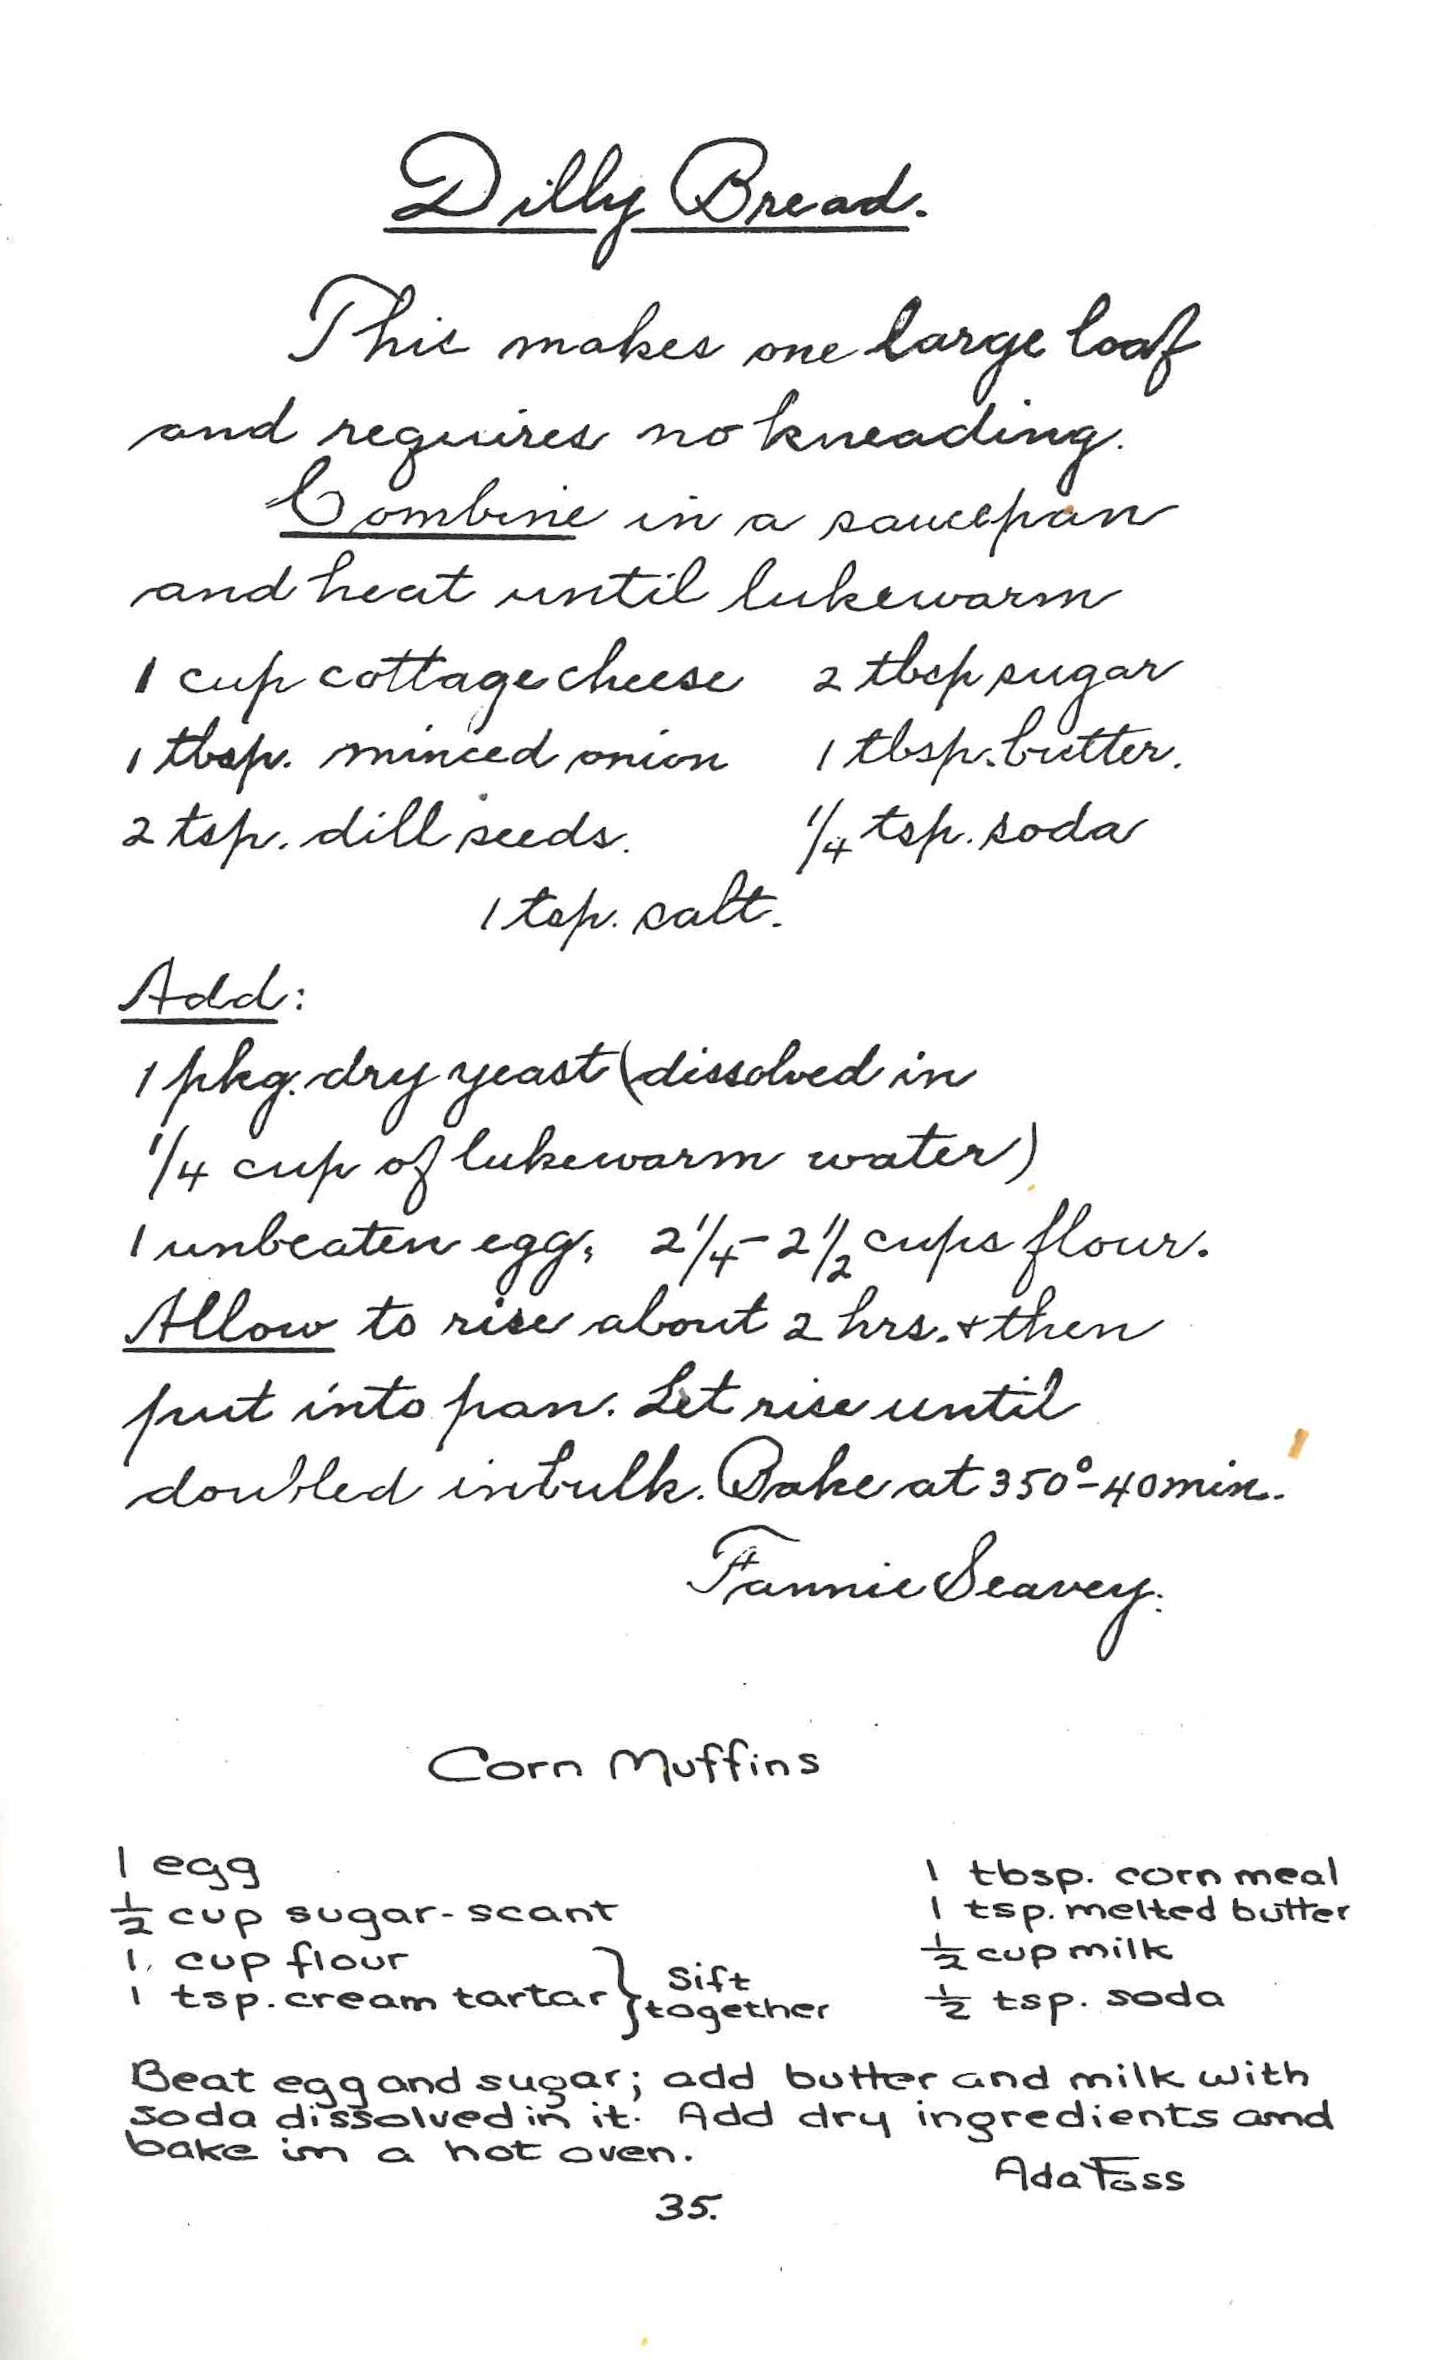 Dilly Bread.
This makes one large loaf
and requires no kneading.
Combine in a saucepan
and heat until lukewarm
1 cup cottage cheese 2 tbsp sugar
1 tbsp. minced onion 1 tbsp. butter.
2 tsp. dill seeds. 1/4 tsp. soda
1 tsp. salt.
Add:
1 pkg. dry yeast (dissolved in
1/4 cup of lukewarm water)
1 unbeaten egg, 2 1/4 - 2 1/2 cups flour.
Allow to rise about 2 hrs. & then
put into pan. Let rise until
doubled in bulk. Bake at 350° - 40 min.
Fannie Seavey.
Corn Muffins
1 egg
1/2 cup sugar - scant
1 cup flour
1 tsp. cream tartar } Sift together
1 tbsp. corn meal
1 tsp. melted butter
1/2 cup milk
1/2 tsp. soda
Beat egg and sugar; add butter and milk with
soda dissolved in it. Add dry ingredients and
bake in a hot oven.
Ada Foss
35.